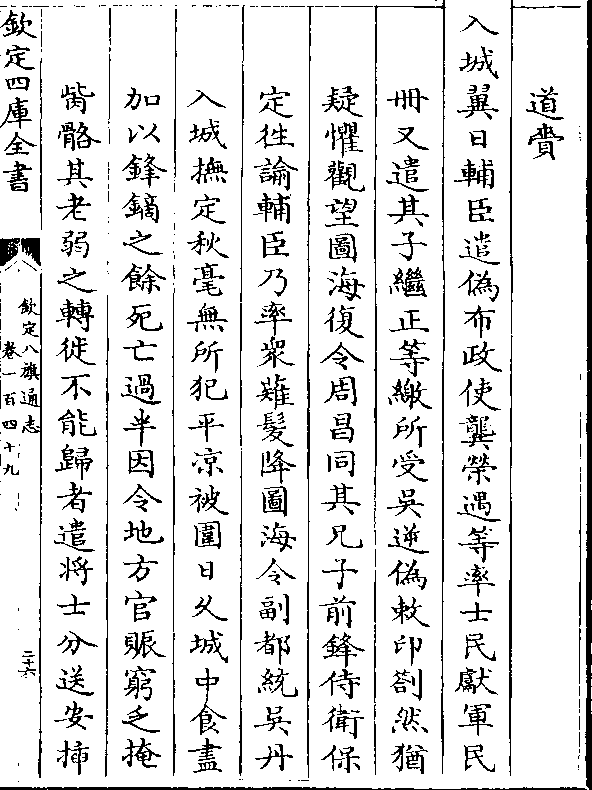 道賷
入城翼日輔臣遣偽布政使龔榮遇等率士民獻軍民
冊又遣其子繼正等繳所受吳逆偽敕印劄然猶
疑懼觀望圖海復令周昌同其兄子前鋒侍衛保
定徃諭輔臣乃率眾薙髮降圖海令副都統吳丹
入城撫定秋毫無所犯平凉被圍日久城中食盡
加以鋒鏑之餘死亡過半因令地方官賑窮乏掩
胔骼其老弱之轉徙不能歸者遣將士分送安揷
欽定四庫全書
欽定八旗通志
卷一百四十九
二十六